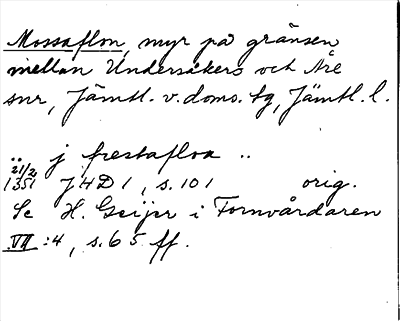 Mossaflon, myr på gränsen
mellan Undersåkers och Åre
snr, Jämtl. v. doms. tg, Jämtl. l.
.. j frestafloa ..
21/2
1351 J4D1, s. 101 orig.
Se H. Geijer i Fornvårdaren
VII:4, s. 65 ff.